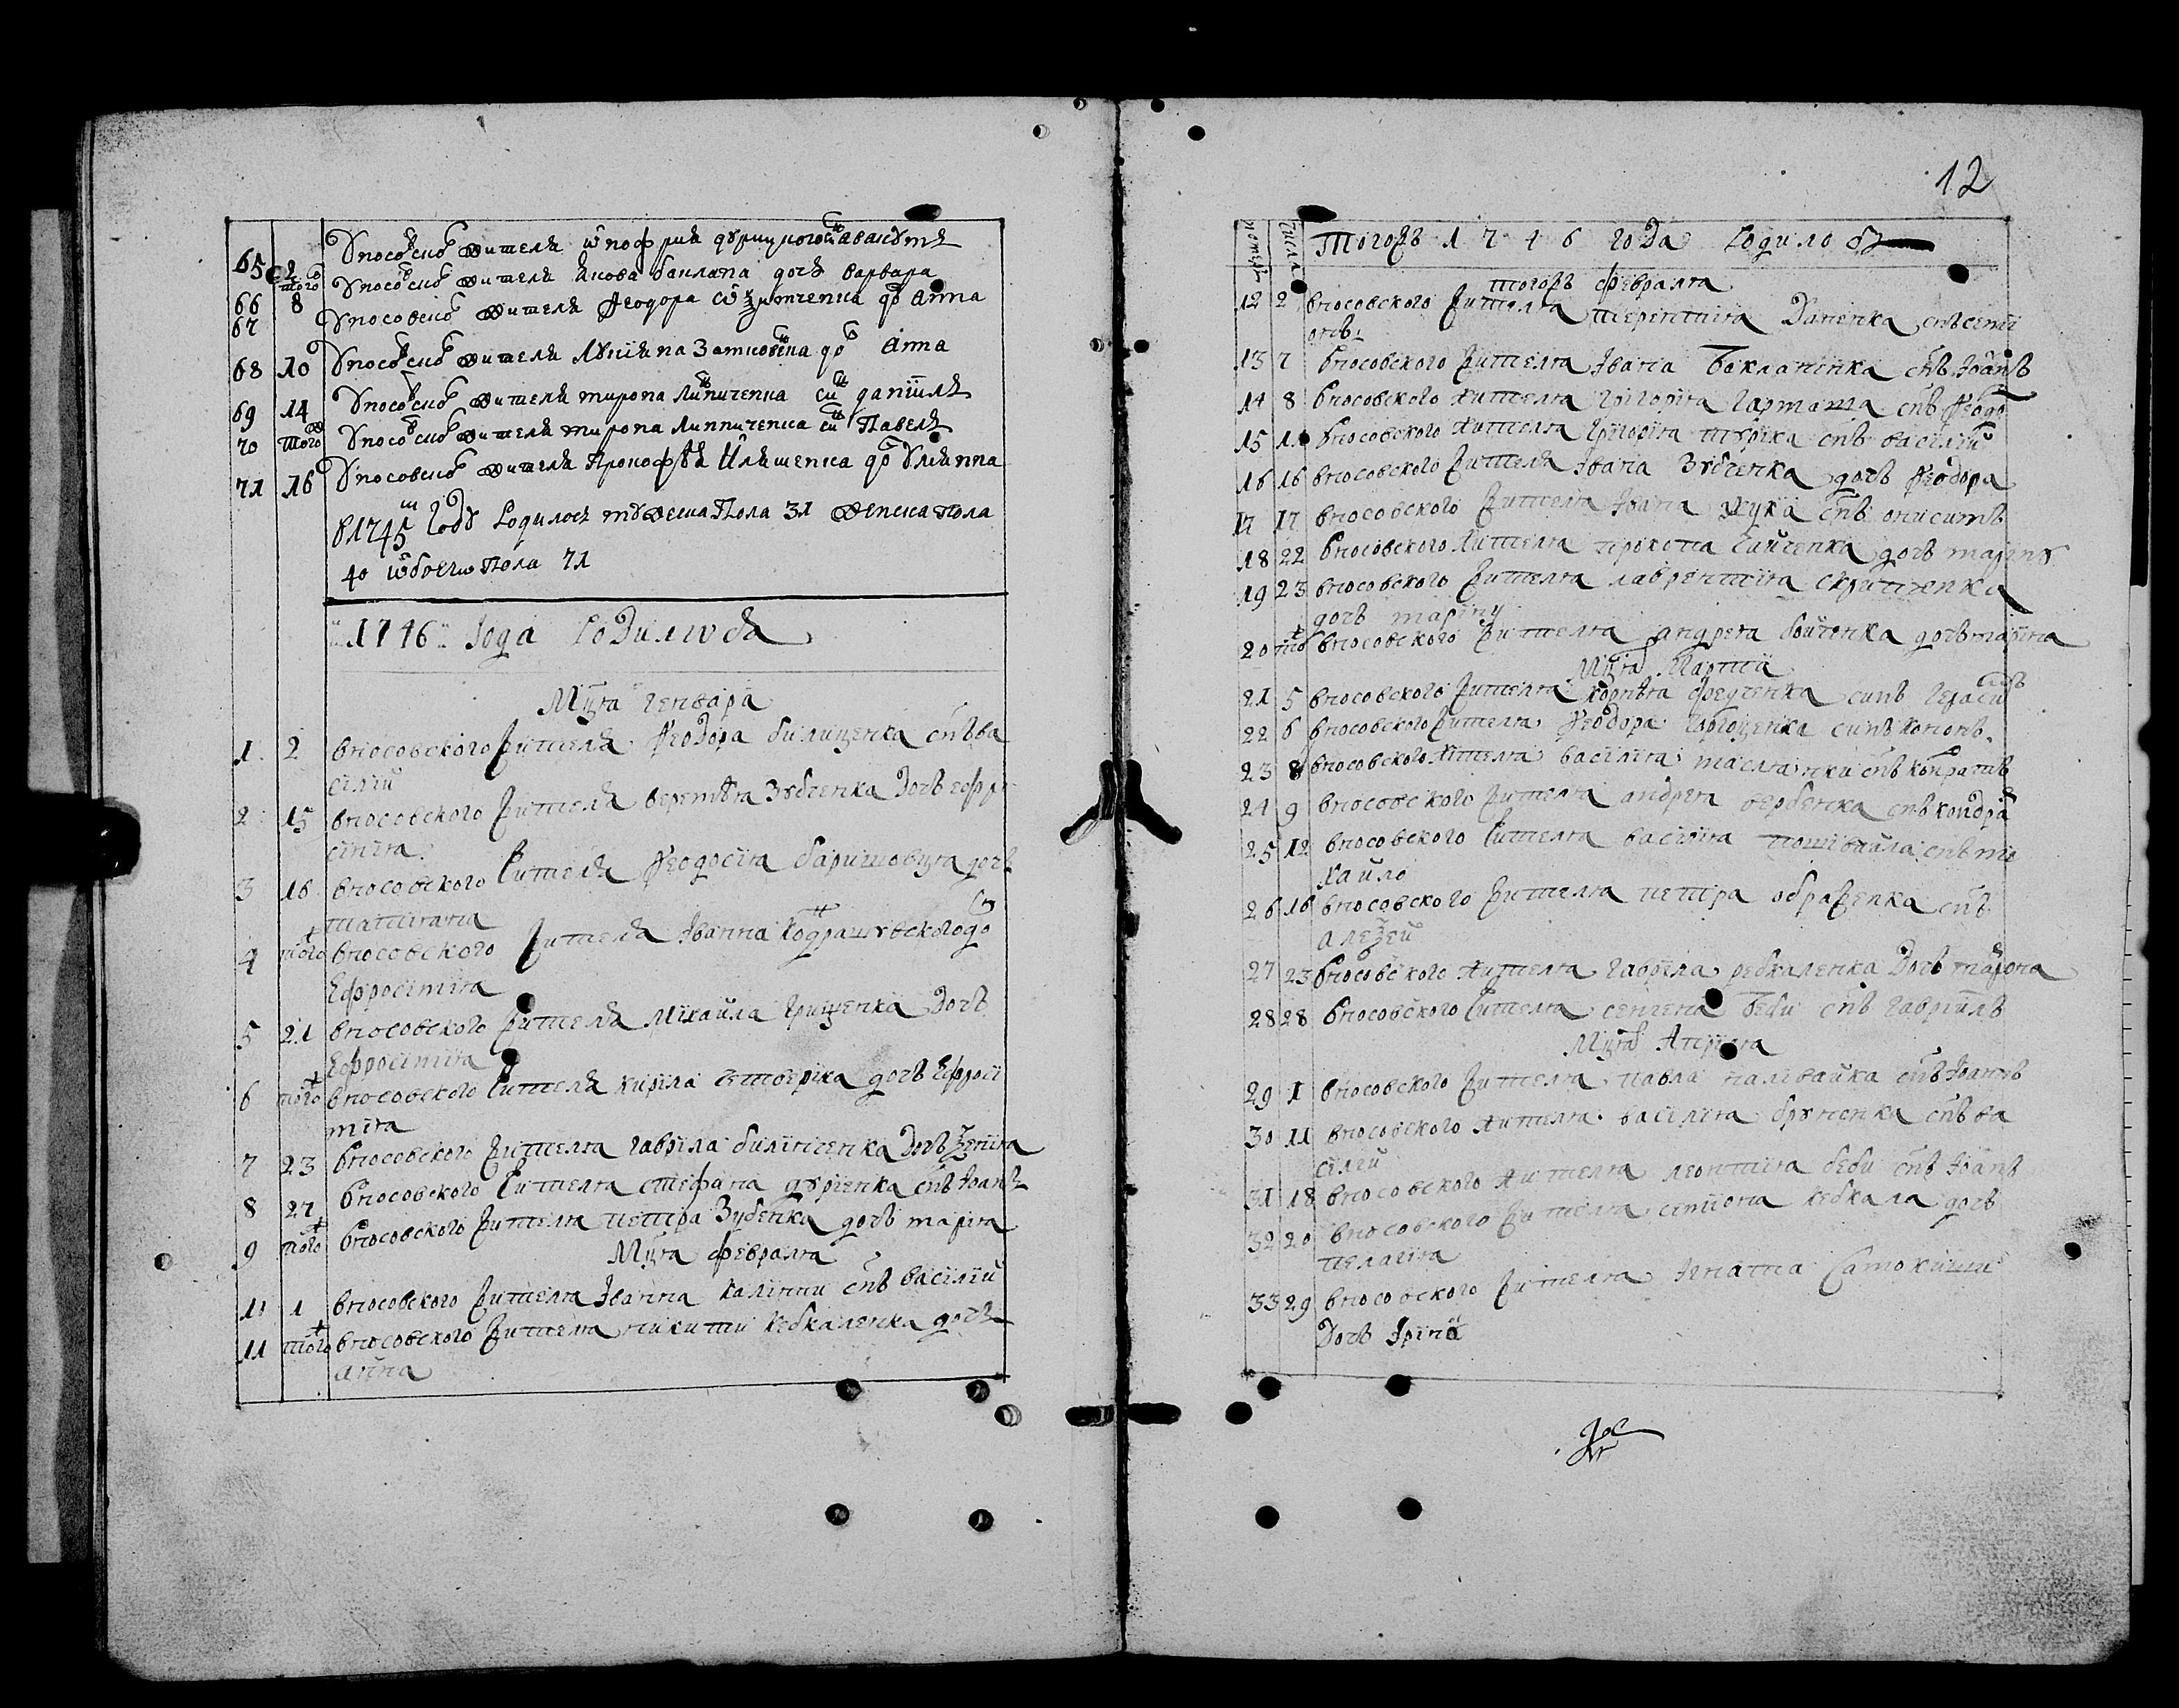 65 у носовског жителя онофрия дурицкого сн авакумъ
66 того у носовског жителя якова баклана дочъ варвара
67 8 у носовског жителя Ѳеодора до анна
68 10 у носовског жителя лукияна до анна
69 14 у носовског жителя мирона липиченка сн данїилъ
70 того у носовског жителя мирона липниченка сн Павелъ
71 16 у носовског жителя Прокофъя Иляшенка до улияна
в 1745 году родилося мужеска Пола 31 женска пола
40 обоего Пола 71
1746 года родилися
Мця генвара
1 2 в носовского жителя Ѳеодора билиценка снъ ва
силїй
2 15 в носовского жителя веремѣя зубченка дочъ ефро
синия
3 16 в носовского жителя Ѳеодосїя баришовця дочъ
татияна
4 того в носовского жителя Іванна Кодрашувского до
Ефросіния
5 21 в носовского жителя Михайла Гриценка дочъ
Ефросіния
6 того в носовского жителя кирїла четверїка дочъ Ефросї
ния
7 23 в носовского жителя гаврїла билїнченка дочъ ѯения
8 27 в носовского жителя стефана дурїенка снъ Іоанъ
9 того в носовского жителя петра Зубенка дочъ марія
Мця февраля
11 1 в носовского жителя Іванна калїнни снъ василїй
11 того в носовского жителя никити кебкаленка дочъ
анна
12
номеръ числа Тогожъ 1 7 4 6 года родило
тогожъ февраля
12 2 в носовского жителя терентия Даненка снъ семї
онъ
13 7 в носовского жителя Івана Бакланенка снъ Іоанъ
14 8 в носовского жителя григорїя гармаша снъ Ѳеодо
15 в носовского жителя Григорїя турїка снъ василїй
16 16 в носовского жителя Івана Зубченка дочъ Ѳеодора
17 17 в носовского жителя Івана жука снъ онисимъ
18 22 в носовского жителя прокопа дочъ марину
19 23 в носовского жителя лаврентїя скрипченка
дочъ марину
20 то в носовского жителя андрея бойченка дочъ марина
Мця Марта
21 5 в носовского жителя корнѣя синъ гераси
22 6 в носовского жителя Ѳеодора синъ кононъ
23 8 в носовского жителя василїя маслянки снъ конратъ
24 9 в носовского жителя андрея вербенка снъ кондра
25 12 в носовского жителя василїя пошивайла снъ ми
хайло
26 16 в носовского жителя петра ображенка снъ
алеѯей
27 23 в носовского жителя гаврїла ребкаленка дочъ
28 28 в носовского жителя семена беби снъ гаврїилъ
Мця Апрїля
29 1 в носовского жителя павла наливайка снъ Іоанъ
30 11 в носовского жителя василїя бруненка снъ ва
силїй
31 18 в носовского жителя леонтїя беби снъ Іоанъ
32 20 в носовского жителя симиона кебкала дочъ
пелагїя
33 29 в носовского жителя Ігната Самокиши
дочъ Ірїна